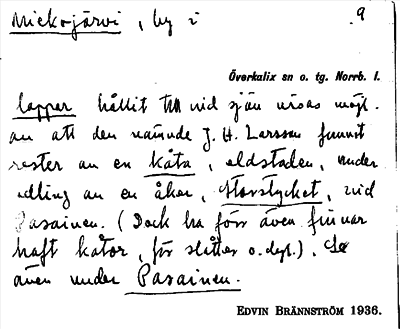 Miekojärvi, by i 9
Överkalix sn o. tg. Norrb. l.
lappar hållit till vid sjön visas möjl.
av att den nämnde J. H. Larsson funnit
rester av en kåta, eldstaden, under
odling av en åker, Storstycket, vid
Pasainen. (Dock ha förr även finnar
haft kåtor, för slåtter o. dyl.). Se
även under Pasainen.
EDVIN BRÄNNSTRÖM 1936.